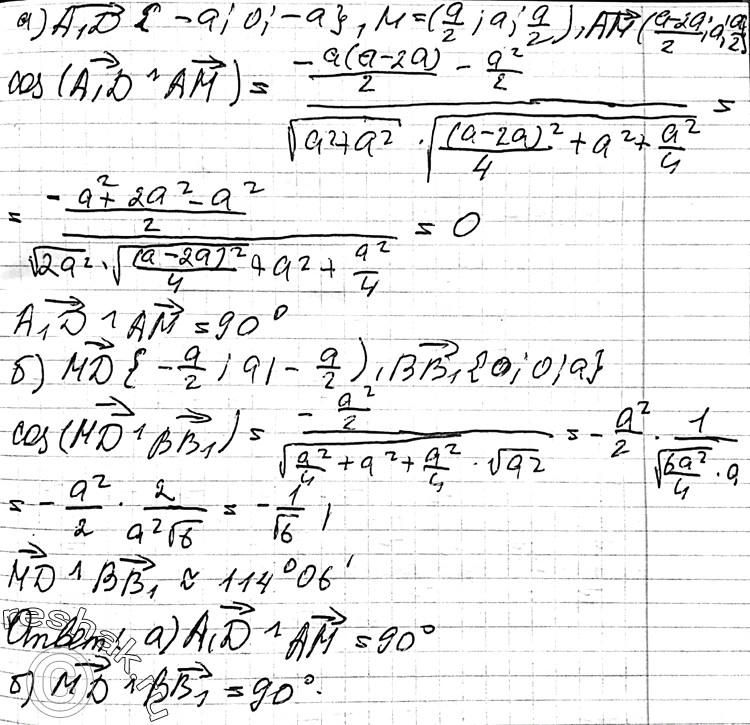 а) A₁D⃗ {-a; 0; -a}, M = (a/2; a; a/2), AM⃗ ((a-2a)/2; a; a/2}
cos (A₁D⃗ ^ AM⃗) = (-a(a-2a)/2 - a²/2) / (√(a²+a²) · √((a-2a)²/4 + a² + a²/4)) =
= ((-a² + 2a² - a²)/2) / (√2a² · √((a-2a)²/4 + a² + a²/4)) = 0
A₁D⃗ ^ AM⃗ = 90°
б) MD⃗ {-a/2; a; -a/2), BB₁⃗ {0; 0; a}
cos (MD⃗ ^ BB₁⃗) = (-a²/2) / (√(a²/4 + a² + a²/4) · √a²) = -a²/2 · 1/(√(6a²/4) · a
= -a²/2 · 2/(a²√6) = -1/√6;
MD⃗ ^ BB₁⃗ ≈ 114°06'
Ответ: а) A₁D⃗ ^ AM⃗ = 90°
б) MD⃗ ^ BB₁⃗ = 90°.
reshak.ru